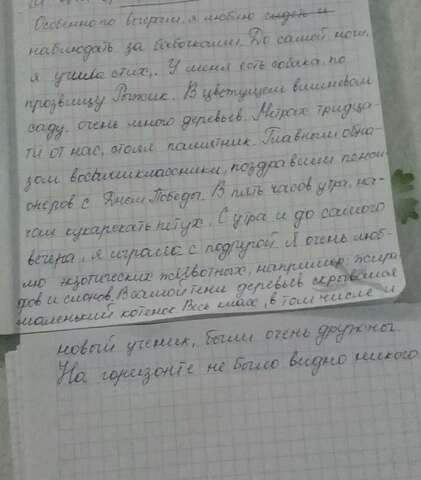 Особенно по вечерам, я люблю сидеть и
наблюдать за бабочками. До самой ночи,
я учила стих. У меня есть собака, по
прозвищу Рыжик. В цветущем вишневом
саду, очень много деревьев. Метрах тридца-
ти от нас, стоял памятник. Главным обра-
зом восьмиклассники, поздравили пенси-
онеров с Днем Победы. В пять часов утра, на-
чал кукарекать петух. С утра и до самого
вечера, я играла с подругой. Я очень люб-
лю экзотических животных, например: жира-
фов и слонов. В самой тени деревьев скрывался
маленький котенок. Весь класс, в том числе и
новый ученик, были очень дружны.
На горизонте не было видно никого.